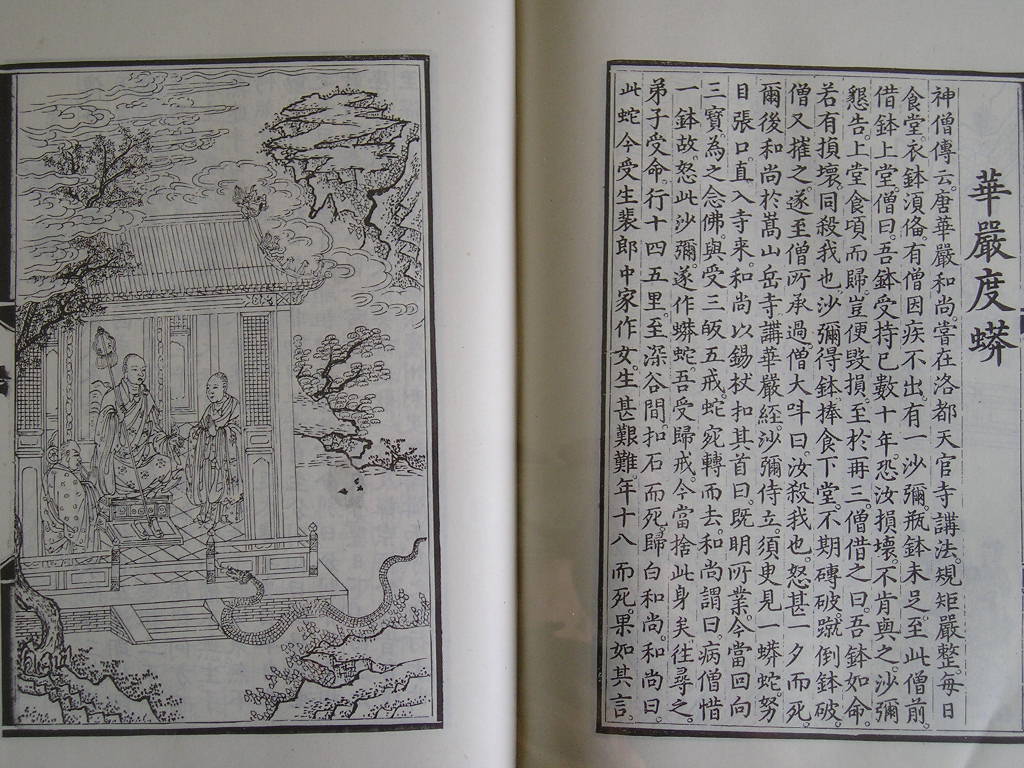 華嚴度蟒
神僧傳云。唐華嚴和尚。嘗在洛都天官寺講法。規矩嚴整。每日
食堂衣鉢須俻。有僧因疾不出。有一沙彌。瓶鉢未足。至此僧前。
借鉢上堂。僧曰。吾鉢受持已數十年。恐汝損壞。不肯與之。沙彌
懇告。上堂食頃而歸。豈便毀損。至於再三。僧借之曰。吾鉢如命。
若有損壞。同殺我也。沙彌得鉢。捧食下堂。不期磚破。蹴倒鉢破。
僧又摧之。遂至僧所承過。僧大呌曰。汝殺我也。怒甚。一夕而死。
爾後和尚於嵩山岳寺講華嚴經。沙彌侍立。須臾見一蟒蛇。努
目張口。直入寺來。和尚以錫杖扣其首曰。既明所業。今當回向
三寶。為之念佛。與受三皈五戒。蛇宛轉而去。和尚謂曰。病僧惜
一鉢故。怒此沙彌。遂作蟒蛇。吾受歸戒。今當捨此身矣。往尋之。
弟子受命。行十四五里。至深谷間。扣石而死。歸白和尚。和尚曰。
此蛇今受生裴郎中家作女。生甚艱難。年十八而死。果如其言。